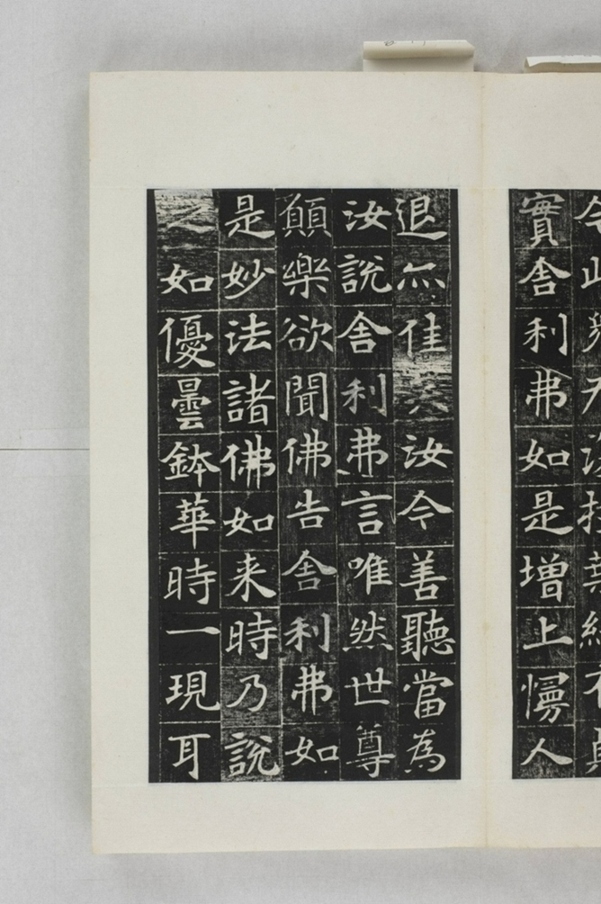 實舍利弗如是增上慢人
退亦佳矣汝今善聽當為
汝說舍利弗言唯然世尊
願樂欲聞佛告舍利弗如
是妙法諸佛如来時乃說
之如優曇鉢華時一現耳